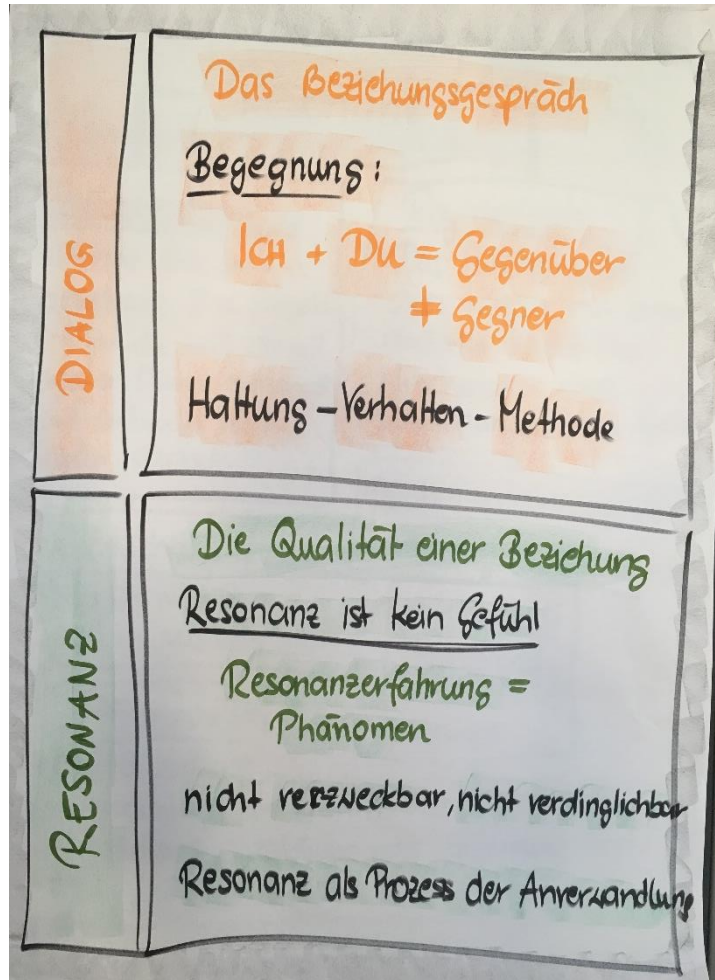 DIALOG
Das Beziehungsgespräch
Begegnung:
Ich + Du = Gegenüber
≠ Gegner
Haltung – Verhalten - Methode
RESONANZ
Die Qualität einer Beziehung
Resonanz ist kein Gefühl
Resonanzerfahrung =
Phänomen
nicht verzweckbar, nicht verdinglichbar
Resonanz als Prozess der Anverwandlung